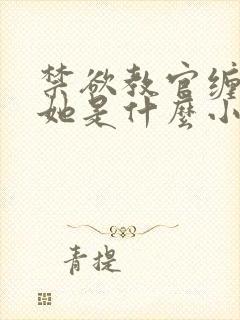 禁欲教官缠
她是什麼小
青提